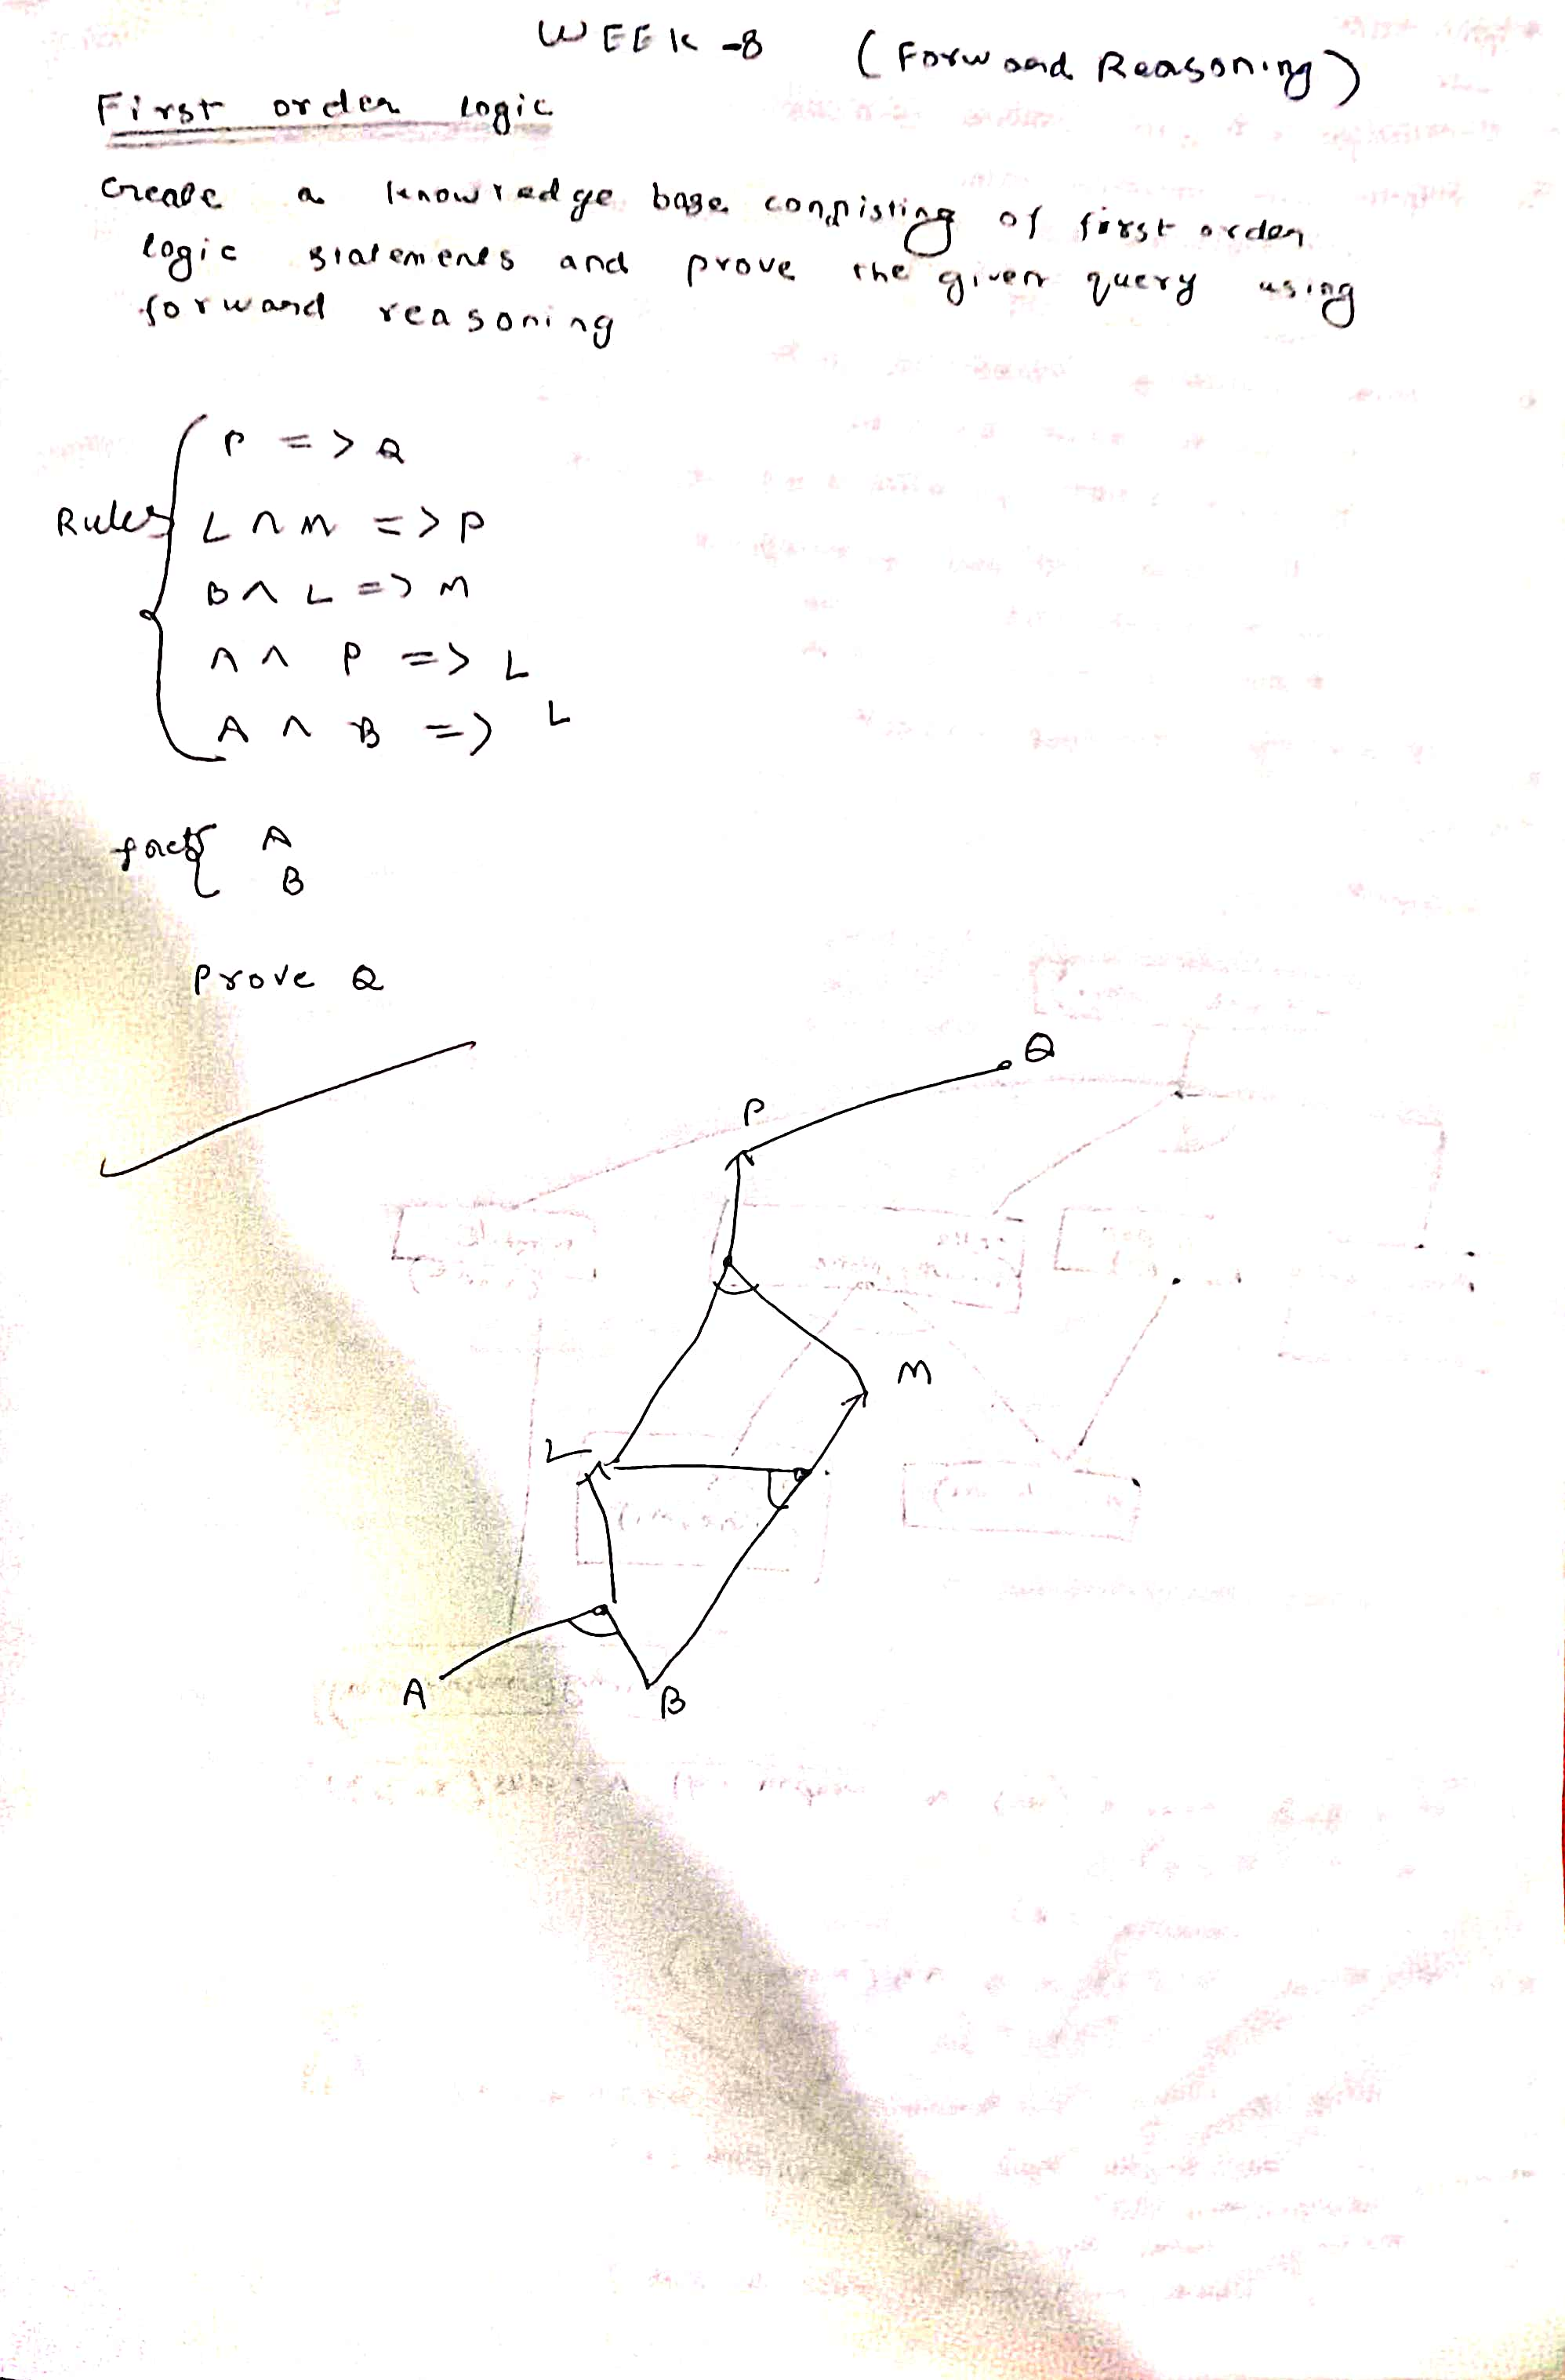 WEEK -8 (Forward Reasoning)
First order logic
Create a knowledge base consisting of first order
logic statements and prove the given query using
forward reasoning
P => Q
Rules L ∩ M => P
B ∧ L => M
∧ ∧ P => L
A ∧ B => L
facts A
B
Prove Q
Q
P
M
L
A
B